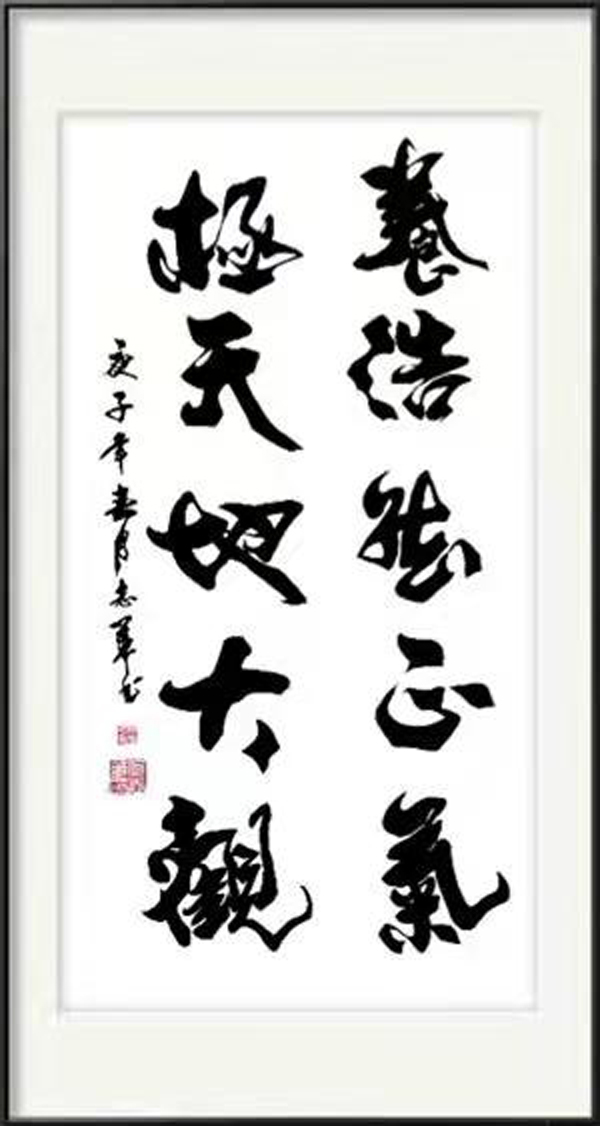 養浩然正氣
極天地大觀
庚子年春月志軍书